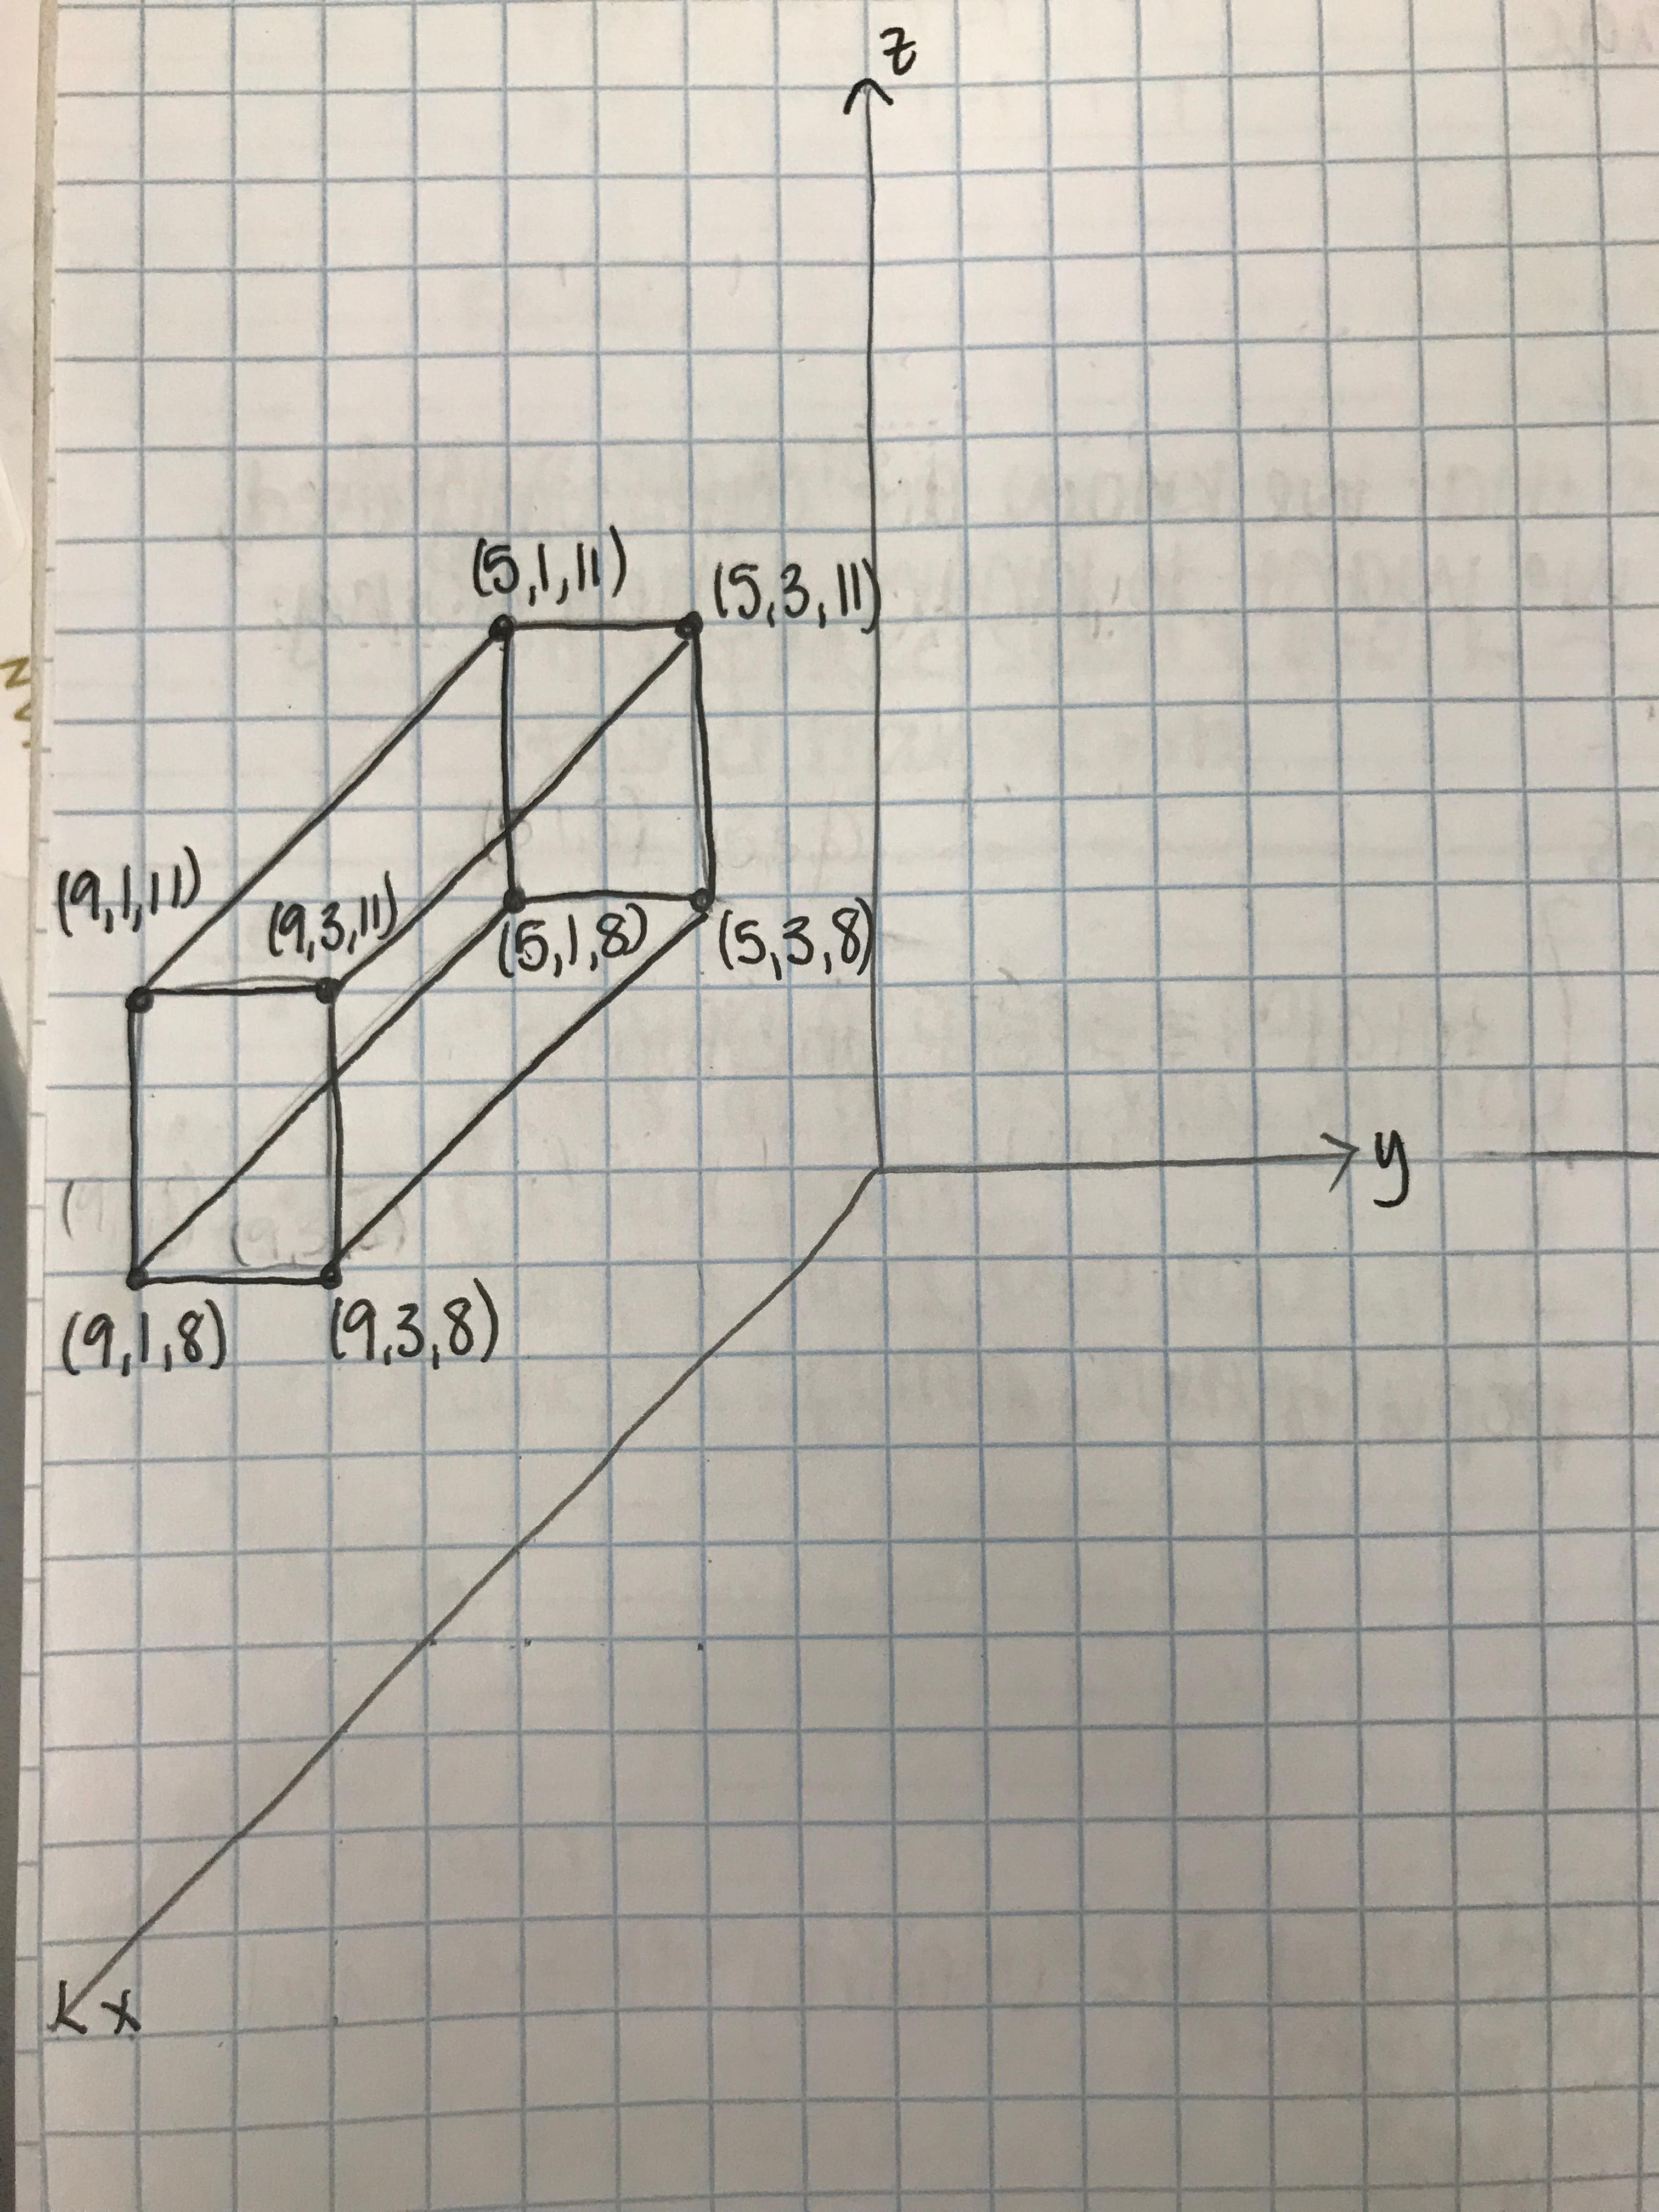 z
(5,1,11)
(5,3,11)
(9,1,11)
(9,3,11)
(5,1,8)
(5,3,8)
y
(9,1,8)
(9,3,8)
x